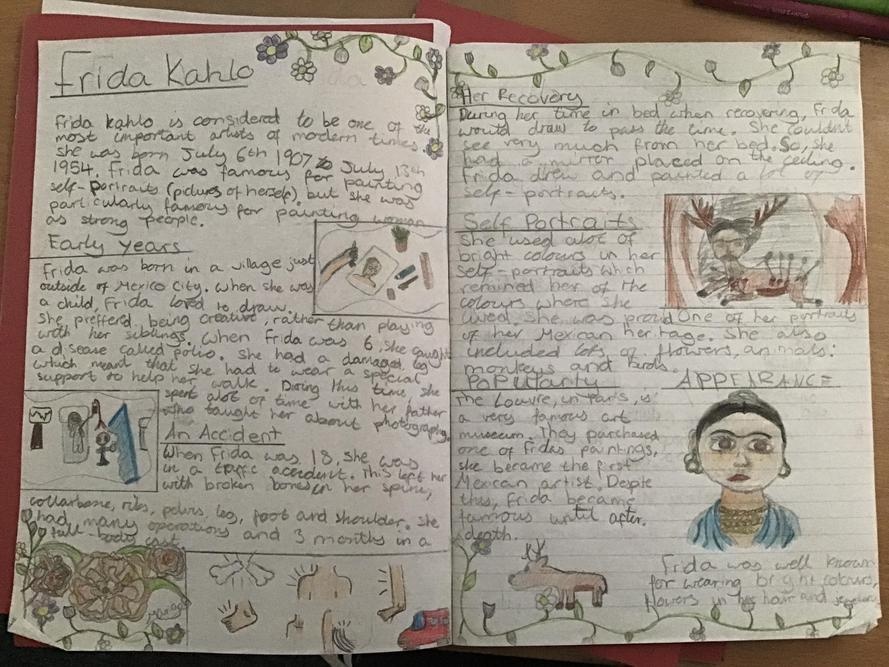 Frida Kahlo
Frida Kahlo is considered to be one of the
most important artists of modern times.
She was born July 6th 1907 to July 13th
1954. Frida was famous for painting
self-portraits (pictures of herself) but she was
particularly famous for painting woman
as strong people.
Early Years
Frida was born in a village just
outside of Mexico City. When she was
a child, Frida loved to draw.
She preffered being creative, rather than playing
with her siblings. When Frida was 6, she caught
a disease called polio. She had a damaged leg
which meant that she had to wear a special
support to help her walk. During this time she
spent alot of time with her father
who taught her about photography.
An Accident
When Frida was 18, she was
in a traffic accedent. This left her
with broken bones in her spine,
collarbone, ribs, pelvis, leg, foot and shoulder. She
had many operations and 3 months in a
full-body cast.
Her Recovery
During her time in bed when recovering, Frida
would draw to pass the time. She couldn't
see very much from her bed. So, she
had a mirror placed on the ceiling.
Frida drew and painted a lot of
self-portraits.
Self Portraits
She used alot of
bright colours in her
self-portraits which
reminded her of the
colours where she
lived. She was proud
of her Mexican heritage. She also
included lots of flowers, animals:
monkeys and birds.
One of her portraits
Popularity
The Louvre, in Paris, is
a very famous art
museum. They purchased
one of Fridas paintings,
she became the first
Mexican artist. Despite
this, Frida became
famous until after
death.
APPEARANCE
Frida was well known
for wearing bright colours,
flowers in her hair and jewelery